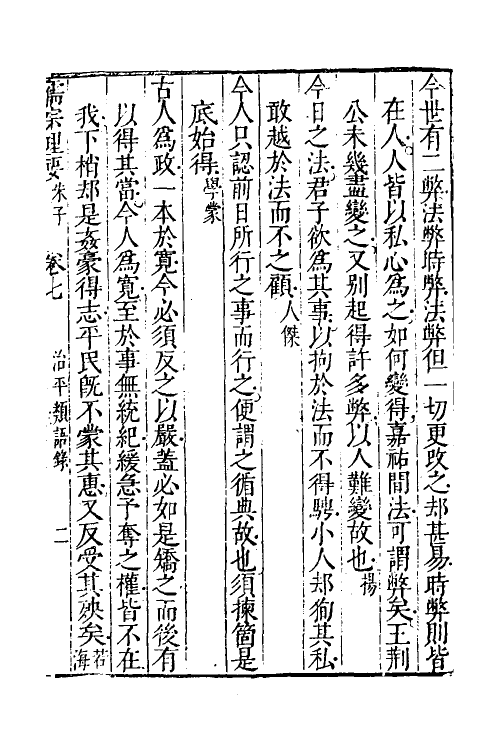 今世有二弊法弊時弊法弊但一切更改之却甚易時弊則皆
在人人皆以私心為之如何變得嘉祐間法可謂弊矣王荆
公未幾盡變之又别起得許多弊以人難變故也揚
今日之法君子欲為其事以拘於法而不得騁小人却徇其私
敢越於法而不之顧人傑
今人只認前日所行之事而行之便謂之循典故也須揀箇是
底始得學蒙
古人為政一本於寛今必須反之以嚴蓋必如是矯之而後有
以得其當今人為寛至於事無統紀緩急予奪之權皆不在
我下梢却是姦豪得志平民旣不蒙其惠又反受其殃矣若海
儒宗理要朱子 卷七 治平類語錄 二